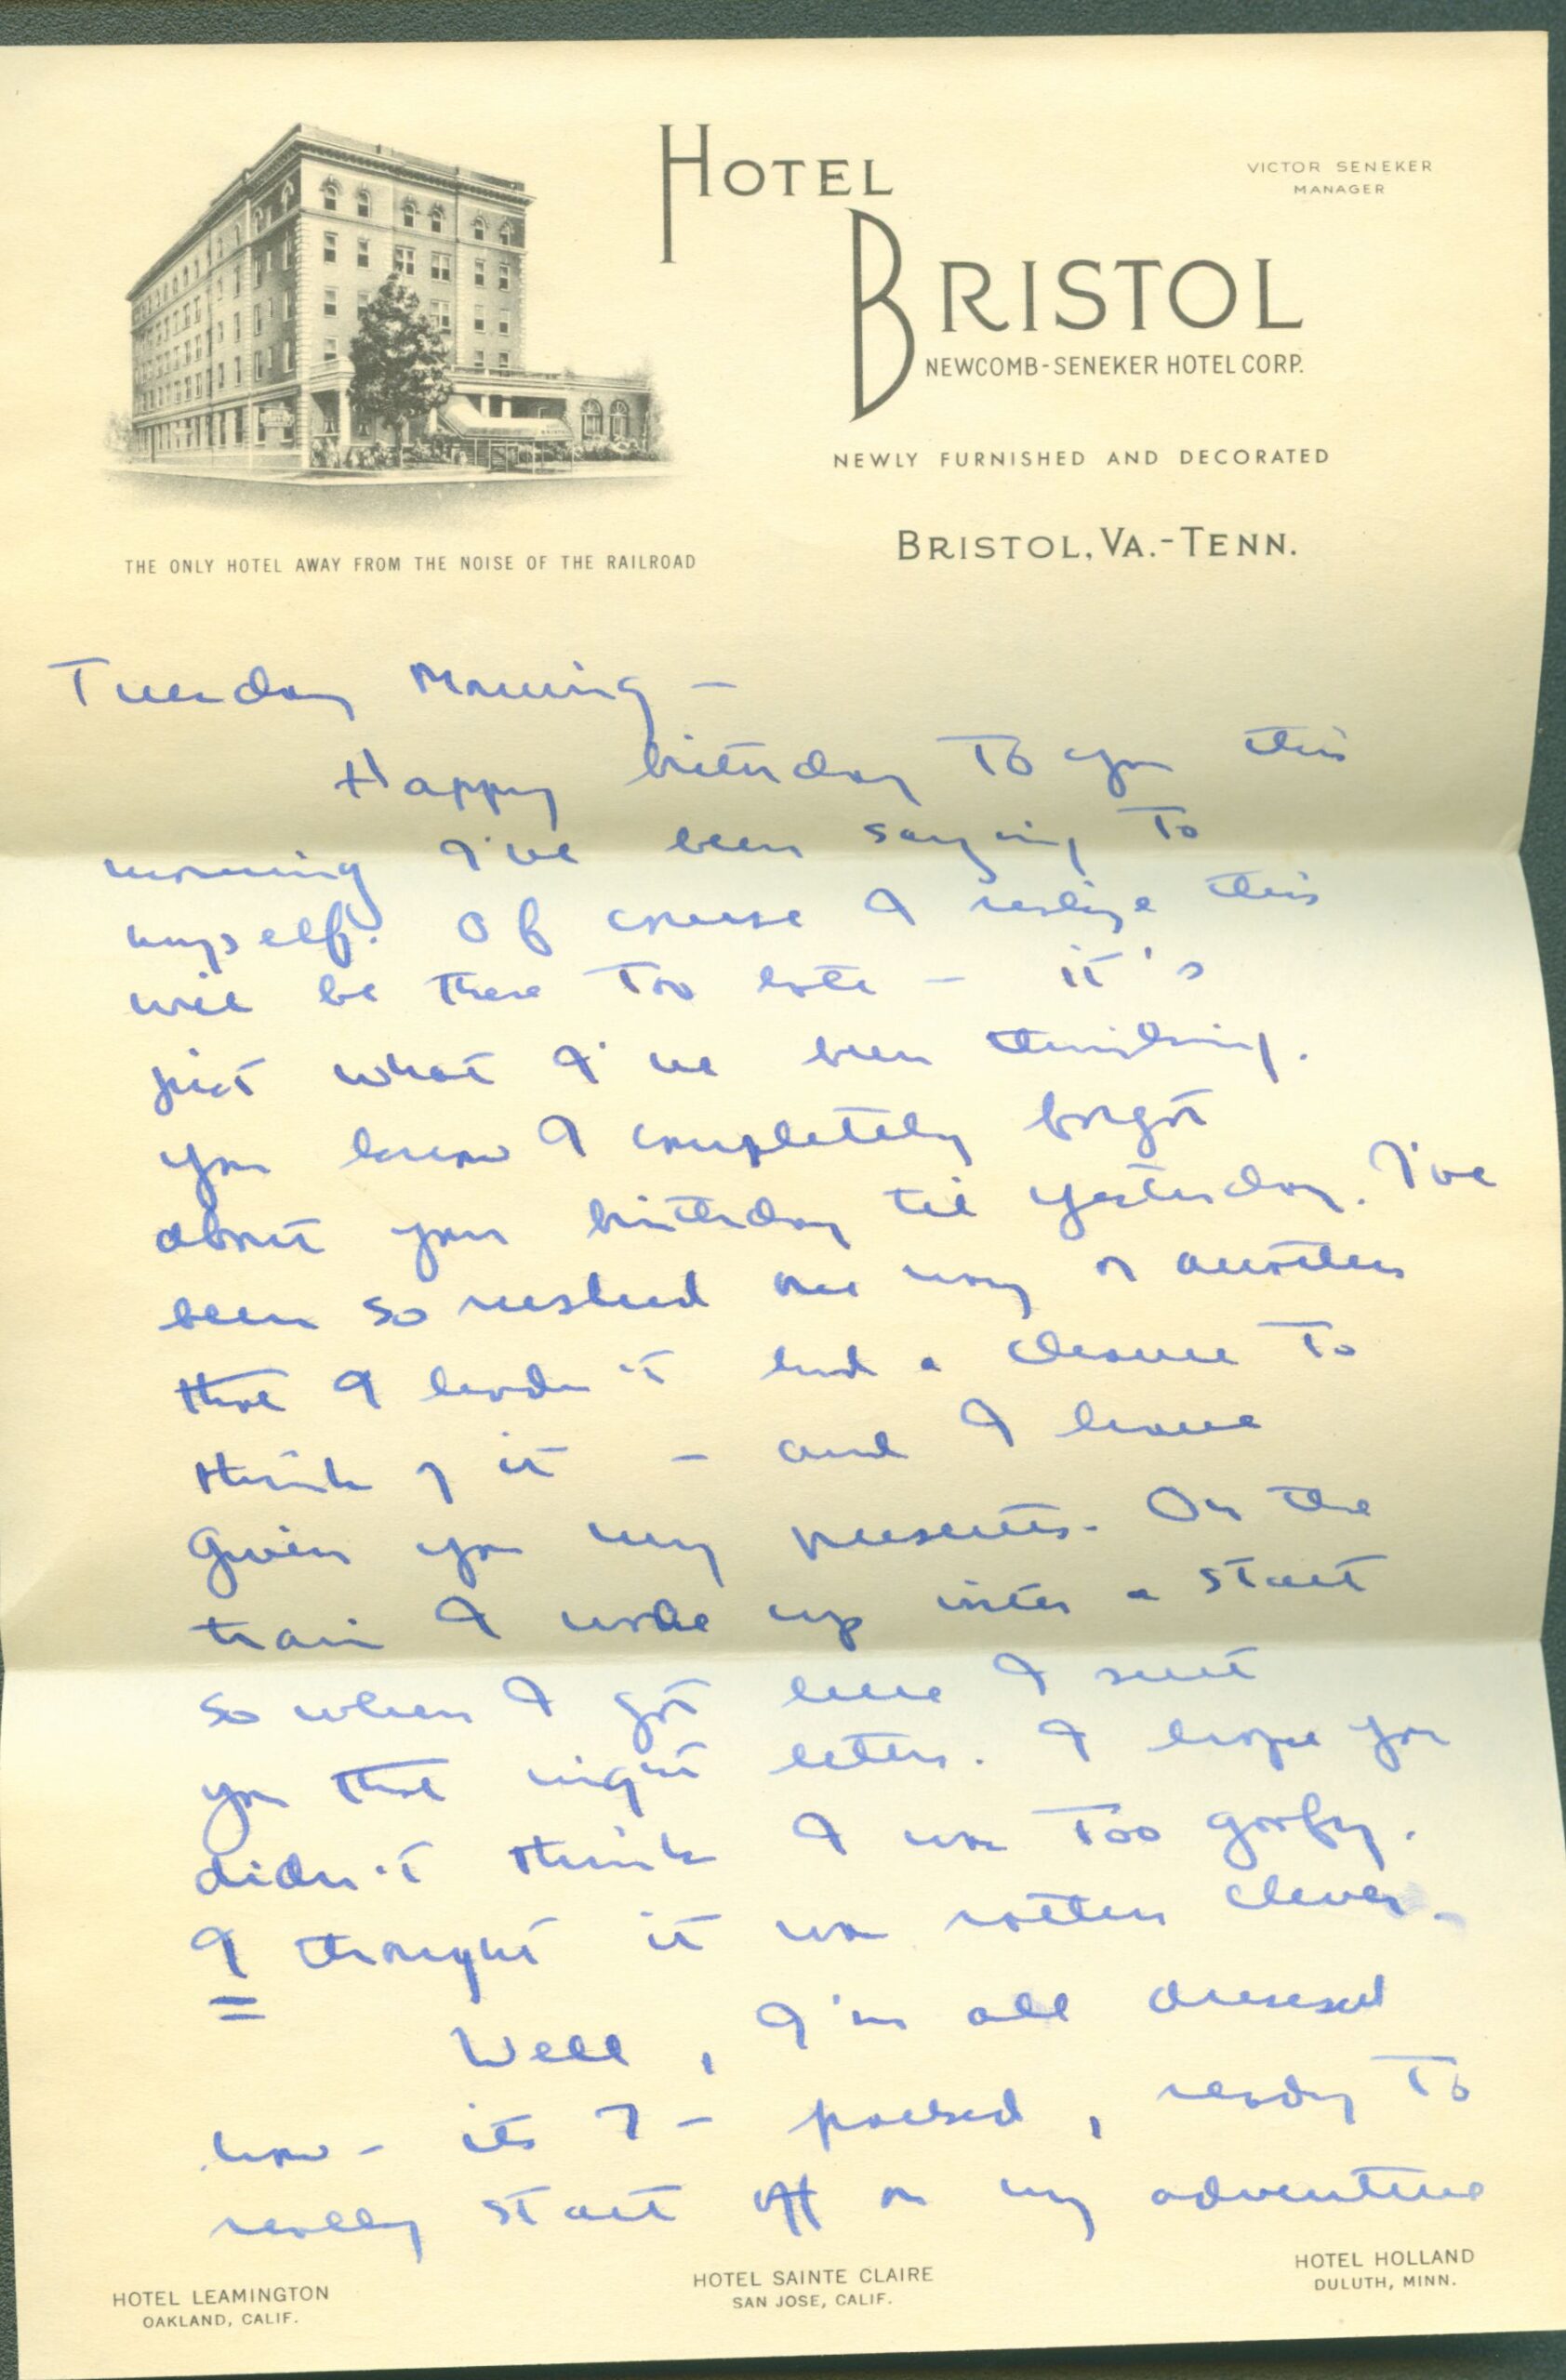 HOTEL
BRISTOL
VICTOR SENEKER
MANAGER
NEWCOMB-SENEKER HOTEL CORP.
NEWLY FURNISHED AND DECORATED
BRISTOL, VA.-TENN.
THE ONLY HOTEL AWAY FROM THE NOISE OF THE RAILROAD
Tuesday Morning –
Happy birthday to you this
morning I've been saying to
myself. Of course I realize this
will be there too late – it's
just what I've been thinking.
You know I completely forgot
about your birthday til yesterday. I've
been so rushed one way or another
that I hadn't had a chance to
think of it – and I have
given you my presents. On the
train I woke up with a start
so when I got here I sent
you that night letter. I hope you
didn't think I was too goofy.
I thought it was rotten clever.
Well, I'm all dressed
now – its 7 – packed, ready to
really start off on my adventure
HOTEL LEAMINGTON
OAKLAND, CALIF.
HOTEL SAINTE CLAIRE
SAN JOSE, CALIF.
HOTEL HOLLAND
DULUTH, MINN.